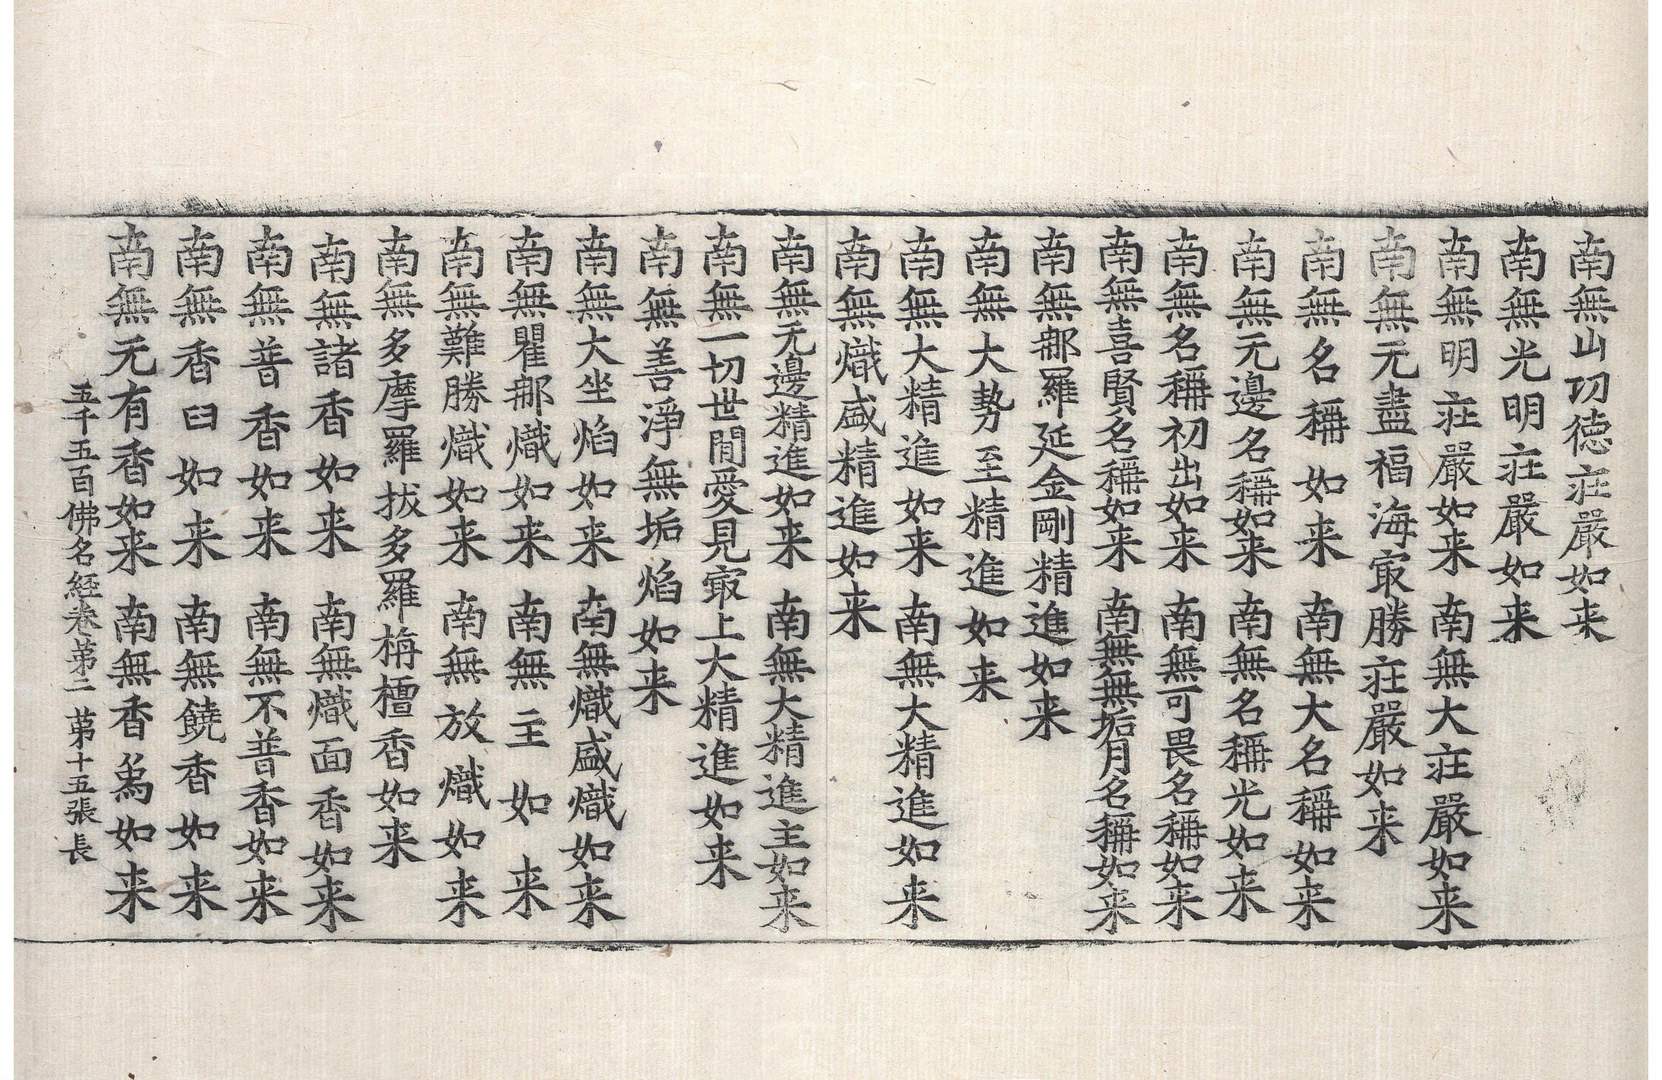 南無山功德莊嚴如来
南無光明莊嚴如来
南無明莊嚴如来　南無大莊嚴如来
南無无盡福海㝡勝莊嚴如来
南無名稱如来　南無大名稱如来
南無无邊名稱如来　南無名稱光如来
南無名稱初出如来　南無可畏名稱如来
南無喜賢名稱如来　南無無垢月名稱如来
南無那羅延金剛精進如来
南無大勢至精進如来
南無大精進如来　南無大精進如来
南無熾盛精進如来
南無无邊精進如来　南無大精進主如来
南無一切世閒愛見㝡上大精進如来
南無善淨無垢焰如来
南無大坐焰如来　南無熾盛熾如来
南無瞿那熾如来　南無主如来
南無難勝熾如来　南無放熾如来
南無多摩羅拔多羅栴檀香如来
南無諸香如来　南無熾面香如来
南無普香如来　南無不普香如来
南無香臼如来　南無饒香如来
南無无有香如来　南無香為如来
五千五百佛名經卷苐二　苐十五張　長